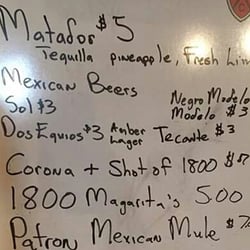 Matador $5
Tequilla pineapple, Fresh Lim
Mexican Beers
Sol $3 Negro Modelo
Modelo $3
Dos Equios $3 Amber Lager Tecante $3
Corona + Shot of 1800 $
1800 Magarita's 5.00
Patron Mexican Mule $